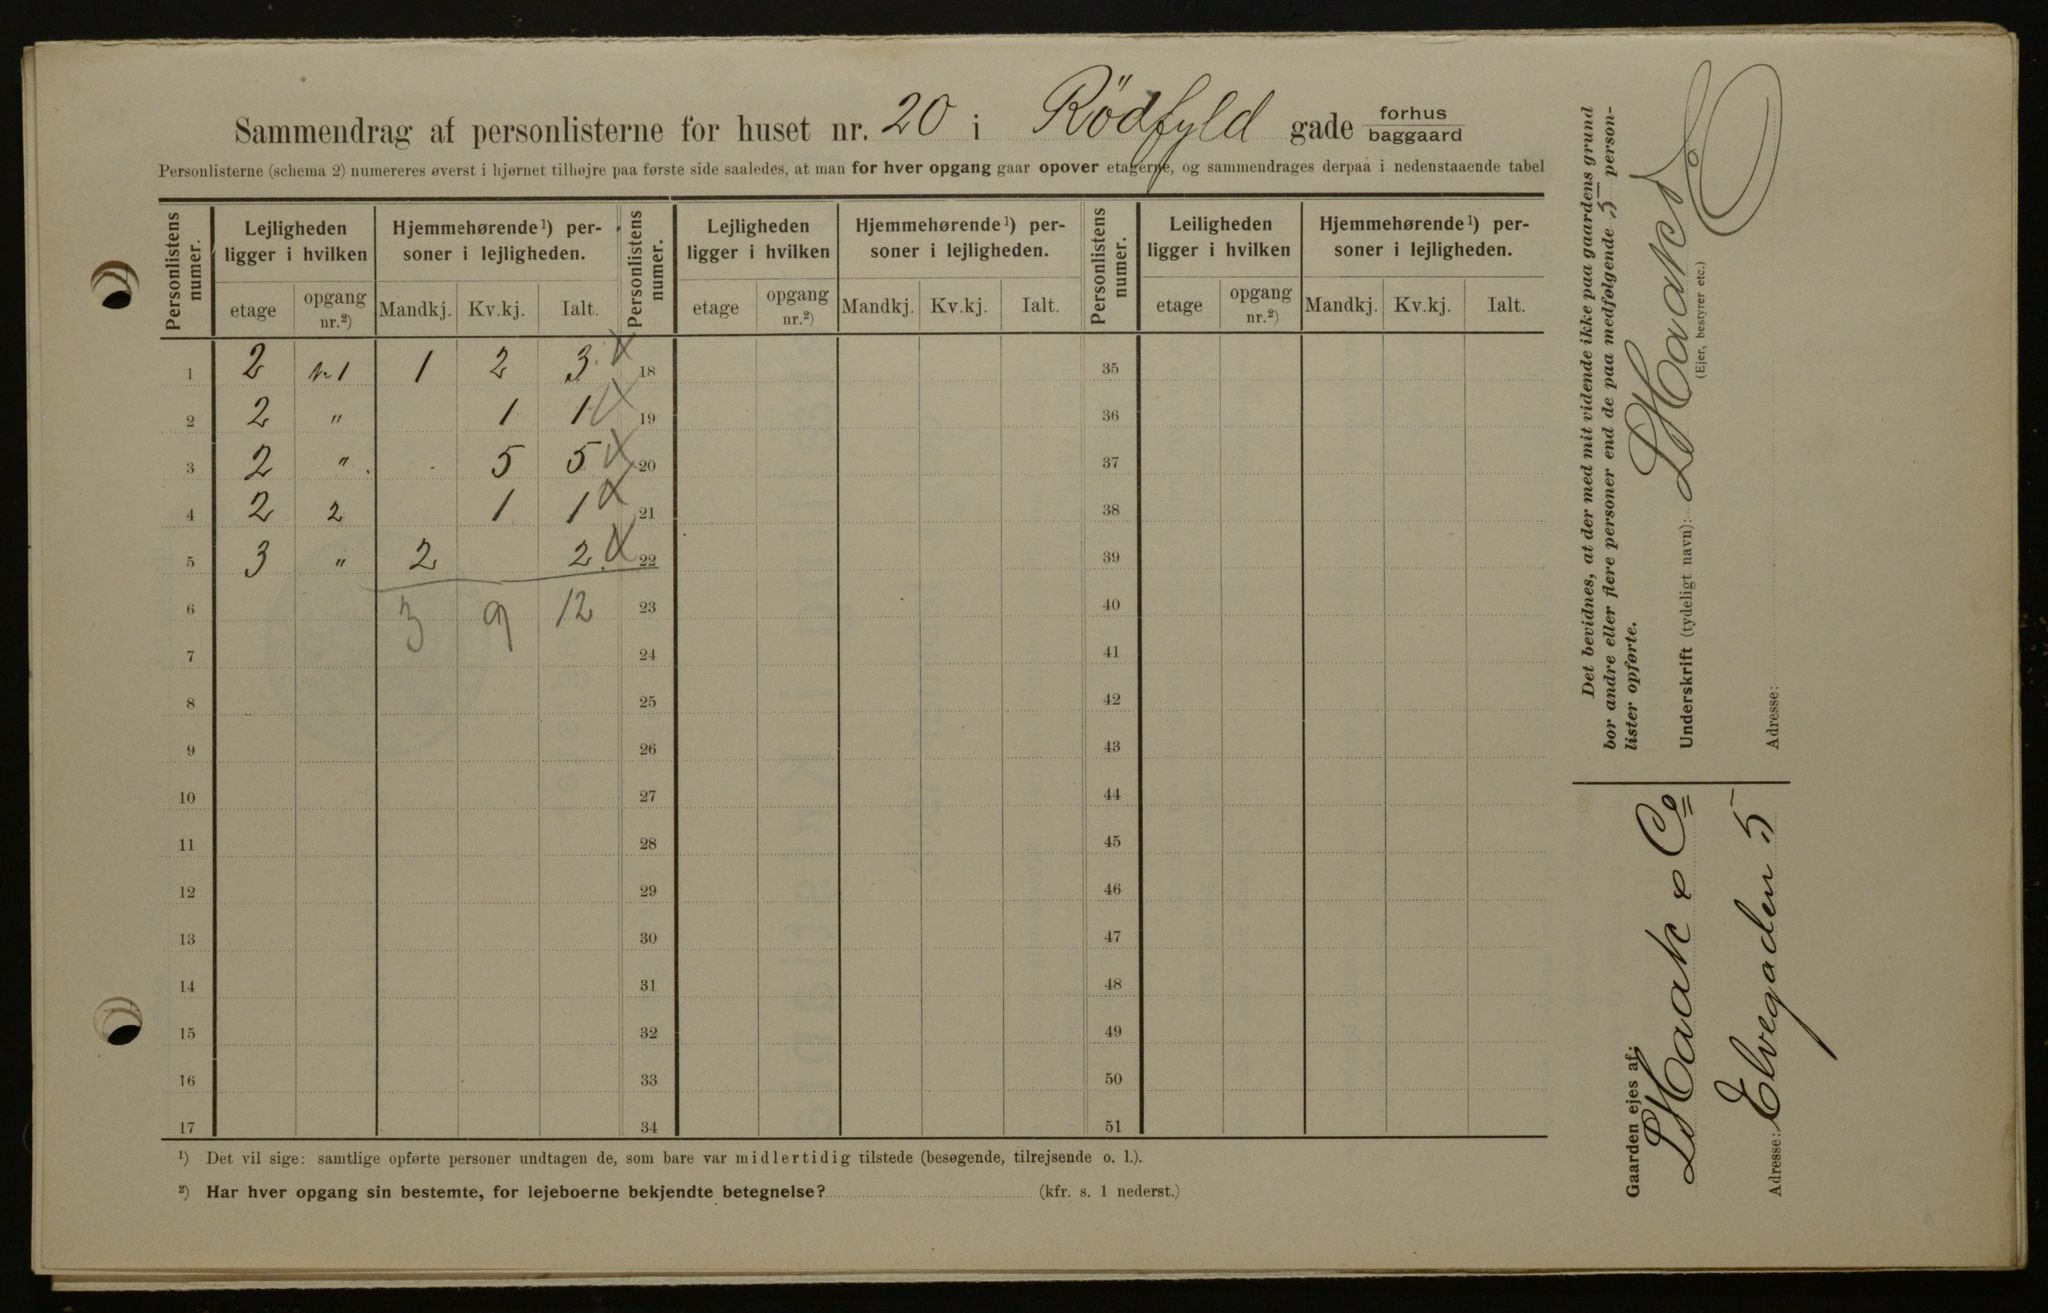 Sammendrag af personlisterne for huset nr. 20 i Rödfyld gade forhus baggaard
Personlisterne (schema 2) numereres øverst i hjørnet tilhøjre paa første side saaledes, at man for hver opgang gaar opover etagerne, og sammendrages derpaa i nedenstaaende tabel
Personlistens numer. Lejligheden ligger i hvilken Hjemmehørende ¹) personer i lejligheden. Personlistens numer. Lejligheden ligger i hvilken Hjemmehørende ¹) personer i lejligheden. Personlistens numer. Leiligheden ligger i hvilken Hjemmehørende ¹) personer i lejligheden.
etage opgang nr.²) Mandkj. Kv.kj. Ialt. etage opgang nr.²) Mandkj. Kv.kj. Ialt. etage opgang nr.²) Mandkj. Kv.kj. Ialt.
1 2 nr 1 1 2 3 18 35
2 2 " 1 1 19 36
3 2 " 5 5 20 37
4 2 2 1 1 21 38
5 3 " 2 2 22 39
6 3 9 12 23 40
7 24 41
8 25 42
9 26 43
10 27 44
11 28 45
12 29 46
13 30 47
14 31 48
15 32 49
16 33 50
17 34 51
¹) Det vil sige: samtlige opførte personer undtagen de, som bare var midlertidig tilstede (besøgende, tilrejsende o. l.).
²) Har hver opgang sin bestemte, for lejeboerne bekjendte betegnelse? (kfr. s. 1 nederst.)
Det bevidnes, at der med mit vidende ikke paa gaardens grund
bor andre eller flere personer end de paa medfølgende 5 person-
lister opførte.
Underskrift (tydeligt navn):
(Ejer, bestyrer etc.)
Adresse:
Gaarden ejes af:
L Haak & Co
Adresse: Elvegaden 5